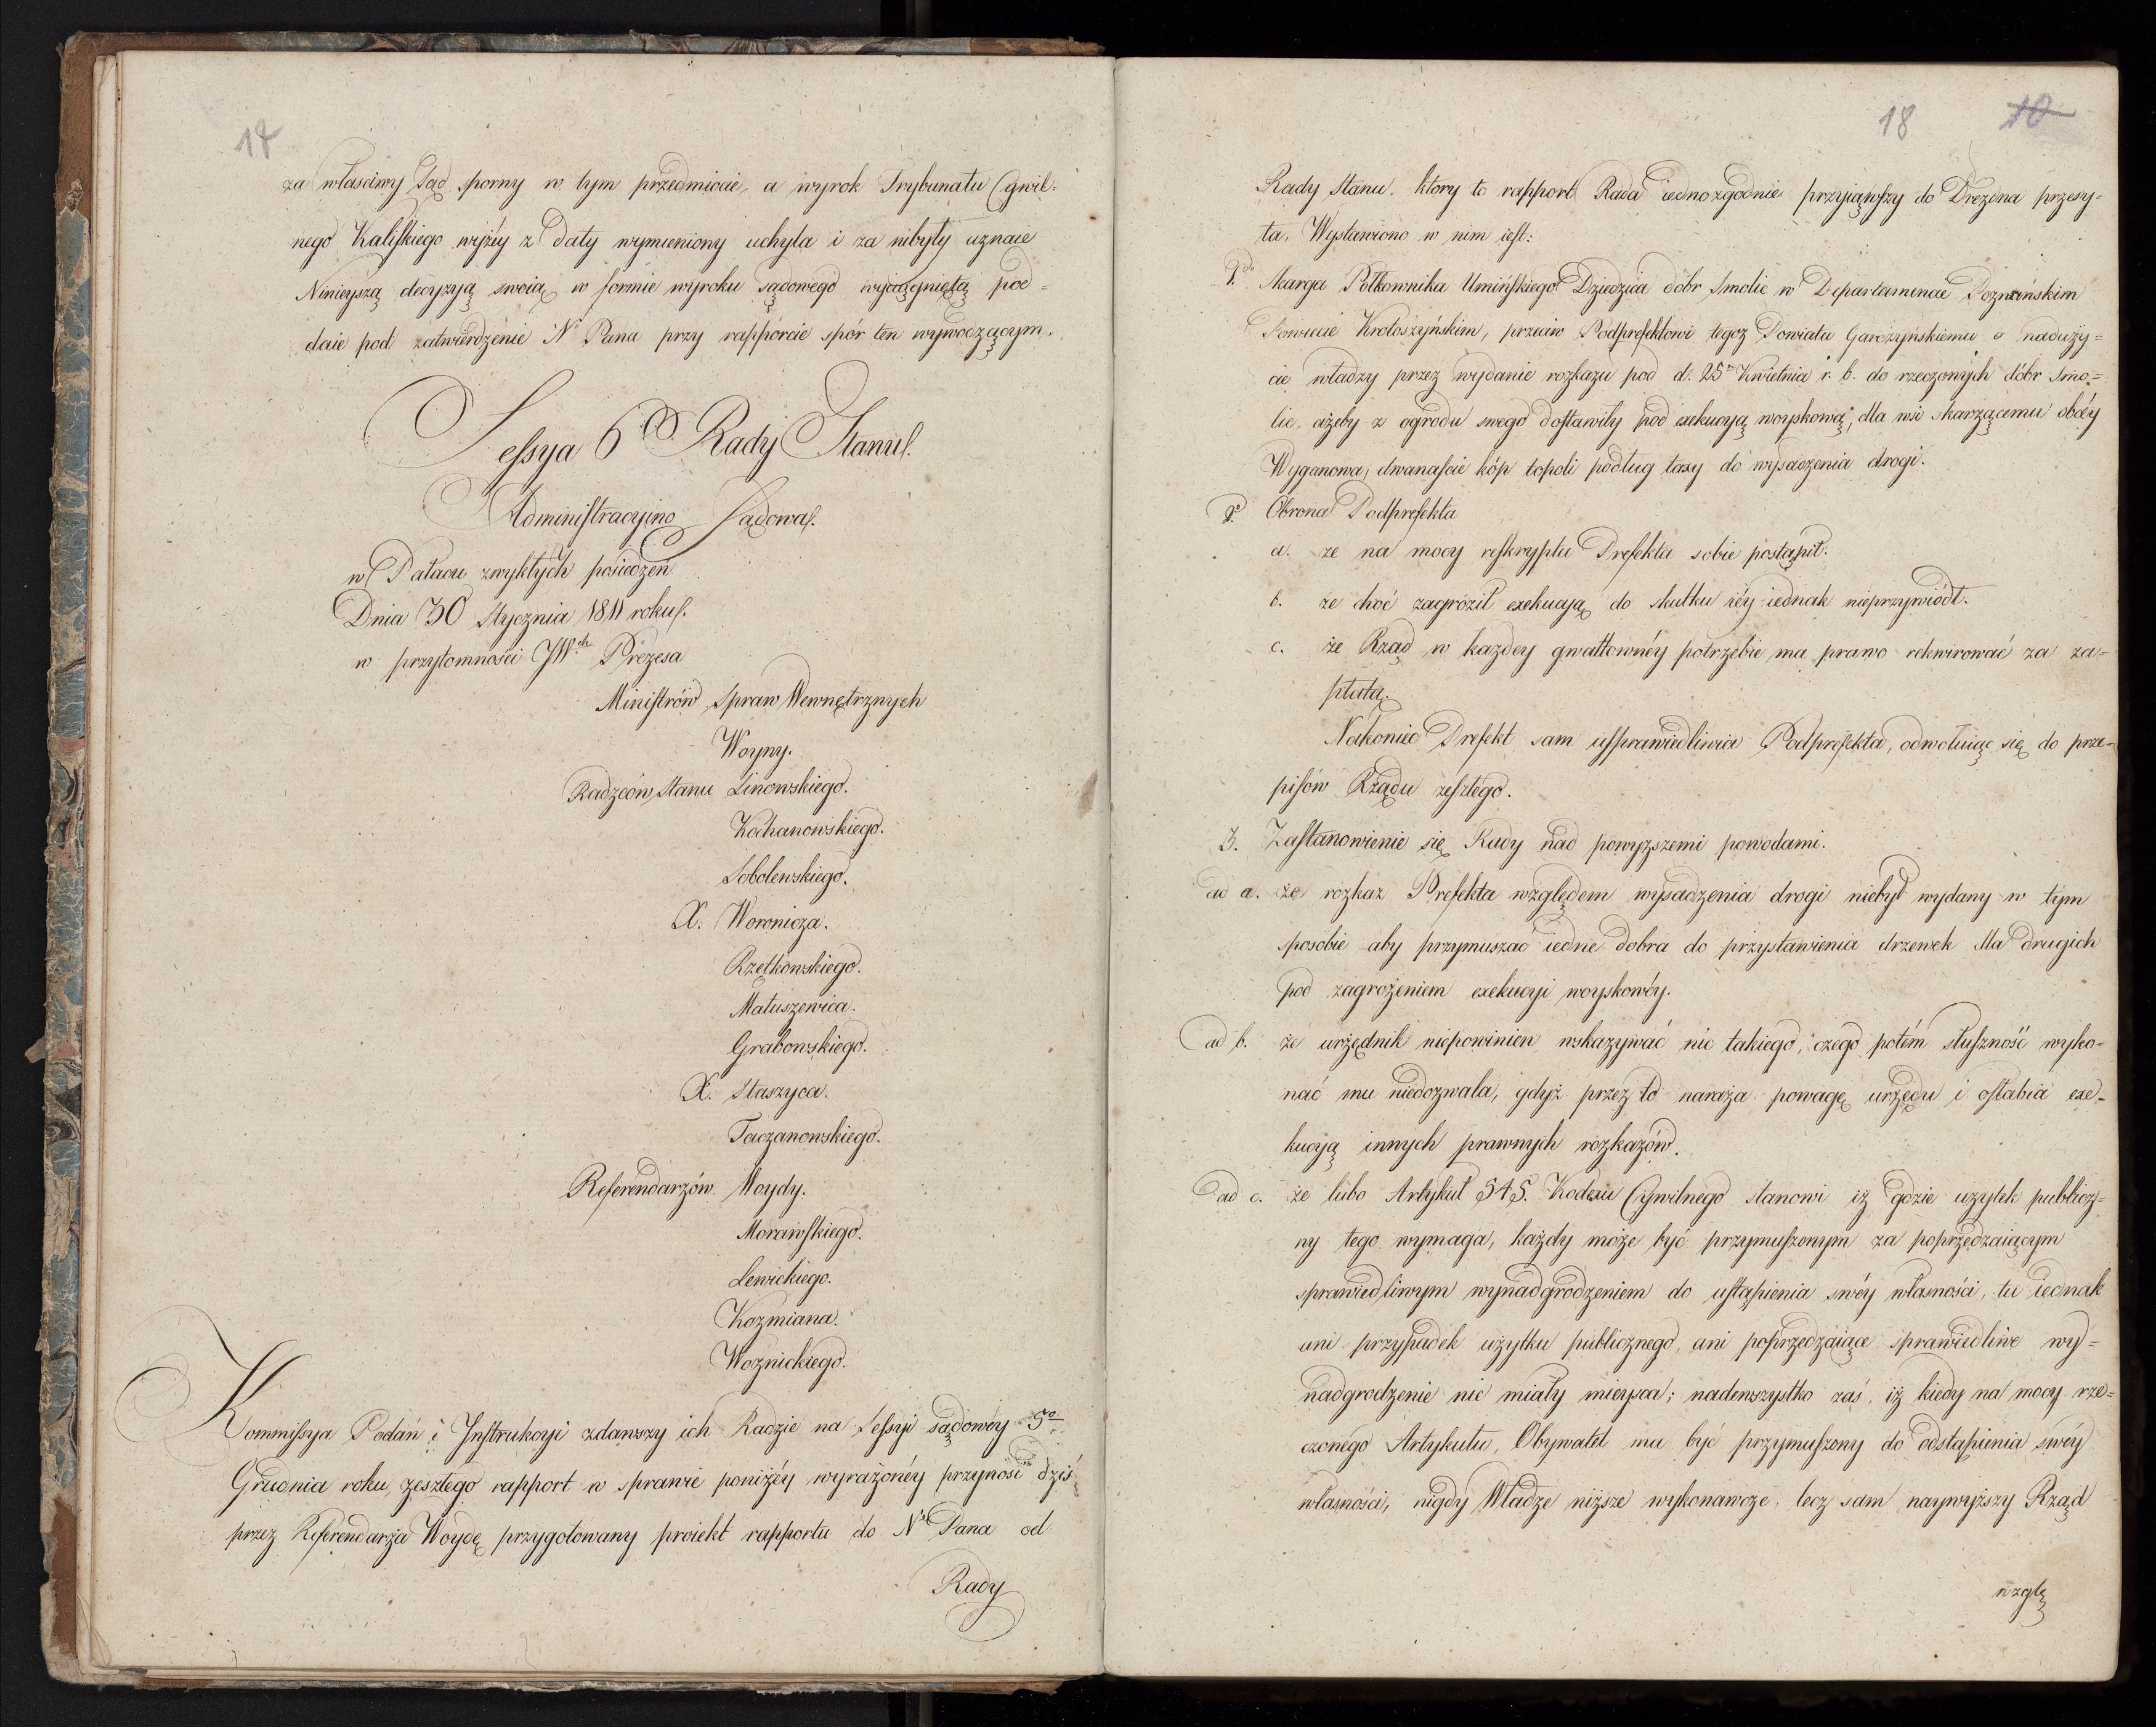 17
za właściwy Sąd sporny w tym przedmiocie, a wyrok Trybunału Cywil=
nego Kaliskiego wyżéy z daty wymieniony uchyla i za niebyły uznaie
Ninieyszą decyzyą swoią w formie wyroku sądowego wyciągniętą pod=
daie pod zatwierdzenie N° Pana przy rapporcie spór ten wywodzącym.
Sessya 6 Rady Stanu.
Administracyjno Sądowa.
w Pałacu zwykłych posiedzeń
Dnia 30 Stycznia 1811 roku.
w przytomności JW.ch Prezesa
Ministrów Spraw Wewnętrznych
Woyny.
Radzców Stanu Linowskiego.
Kochanowskiego.
Sobolewskiego.
X. Woronicza.
Rzętkowskiego.
Matuszewica.
Grabowskiego.
X. Staszyca.
Taczanowskiego.
Referendarzów Woydy.
Morawskiego.
Lewickiego.
Kozmiana.
Woznickiego.
Kommissya Podań i Instrukcyi zdawszy ich Radzie na Sessyi sądowéy 5°
Grudnia roku zeszłego rapport w sprawie poniżéy wyrażonéy przynosi dziś
przez Referendarza Woydę przygotowany proiekt rapportu do N° Pana od
Rady
18 10
Rady Stanu. który to rapport Rada iednozgodnie przyiąwszy do Drezna przesy=
ła. Wystawiono w nim iest:
1° Skarga Półkownika Umińskiego Dziedzica dóbr Smolic w Departamencie Poznańskim
Powiecie Krotoszyńskim, przeciw Podprefektowi tegoż Powiatu Garczyńskiemu o naduży=
cie władzy przez wydanie rozkazu pod d. 25° Kwietnia r. b. do rzeczonych dóbr Smo=
lic, ażeby z ogrodu swego dostawiły pod exekucyą woyskową, dla wsi skarzącemu obcéy
Wyganowa, dwanaście kóp topoli podług taxy do wysadzenia drogi.
2. Obrona Podprefekta
a. że na mocy reskryptu Prefekta sobie postąpił.
b. że choć zagroził exekucyą do skutku iéy iednak nieprzywiódł.
c. że Rząd w każdey gwałtownéy potrzebie ma prawo rekwirować za za=
płatą.
Nakoniec Prefekt sam usprawiedliwia Podprefekta, odwołuiąc się do prze=
pisów Rządu zeszłego.
3. Zastanowienie się Rady nad powyższemi powodami.
ad a. że rozkaz Prefekta względem wysadzenia drogi niebył wydany w tym
sposobie aby przymuszać iedne dobra do przystawienia drzewek dla drugich
pod zagrożeniem exekucyi woyskowéy.
ad b. że urzędnik niepowinien wskazywać nic takiego, czego potém słuszność wyko=
nać mu niedozwala, gdyż przez to naraża powagę urzędu i osłabia exe=
kucyą innych prawnych rozkazów.
ad c. że lubo Artykuł 545. Kodexu Cywilnego stanowi iż gdzie użytek publicz=
ny tego wymaga, każdy może być przymuszonym za poprzedzaiącym
sprawiedliwym wynadgrodzeniem do ustąpienia swéy własności, tu iednak
ani przypadek użytku publicznego, ani poprzedzaiące sprawiedliwe wy=
nadgrodzenie nie miały mieysca; nadewszystko zaś, iż kiedy na mocy rze=
czonego Artykułu, Obywatel ma być przymuszony do odstąpienia swéy
własności, nigdy Władze niższe wykonawcze, lecz sam naywyższy Rząd
wzglę